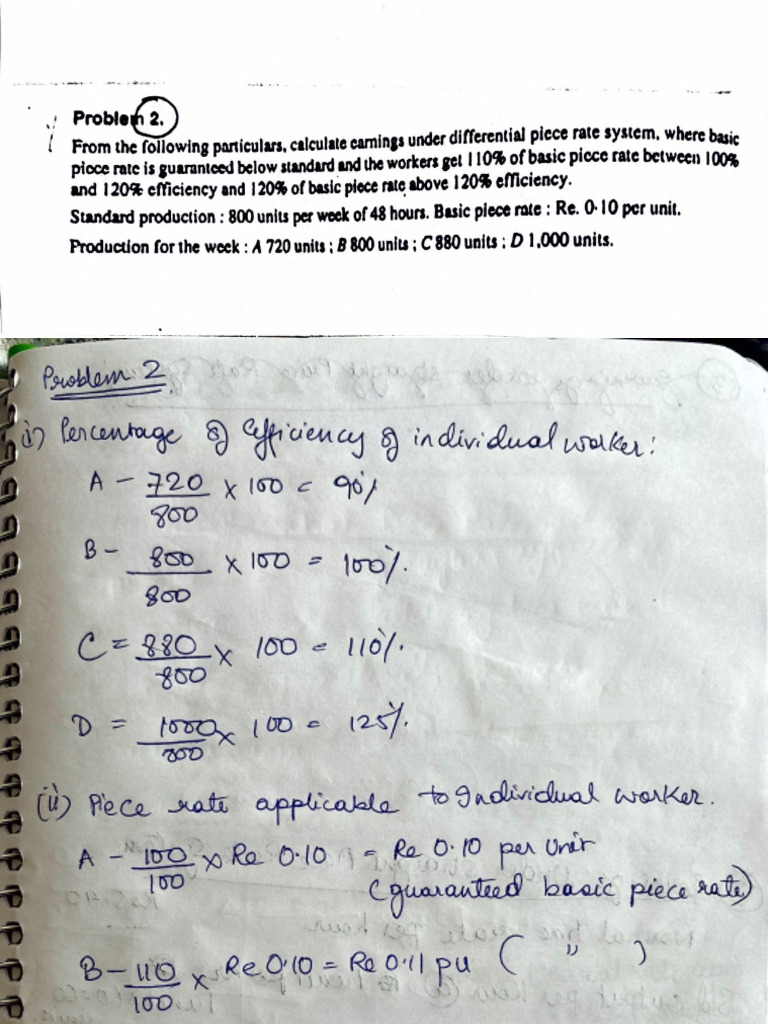 Problem 2.
From the following particulars, calculate earnings under differential piece rate system, where basic
piece rate is guaranteed below standard and the workers get 110% of basic piece rate between 100%
and 120% efficiency and 120% of basic piece rate above 120% efficiency.
Standard production : 800 units per week of 48 hours. Basic piece rate : Re. 0·10 per unit.
Production for the week : A 720 units ; B 800 units ; C 880 units ; D 1,000 units.
Problem 2
i) Percentage of Efficiency of individual worker:
A - 720/800 × 100 = 90%
B - 800/800 × 100 = 100%.
C = 880/800 × 100 = 110%.
D = 1000/800 × 100 = 125%.
(ii) Piece rate applicable to Individual worker.
A - 100/100 × Re 0.10 = Re 0.10 per Unit
(guaranteed basic piece rate)
B - 110/100 × Re 0.10 = Re 0.11 pu ( " )